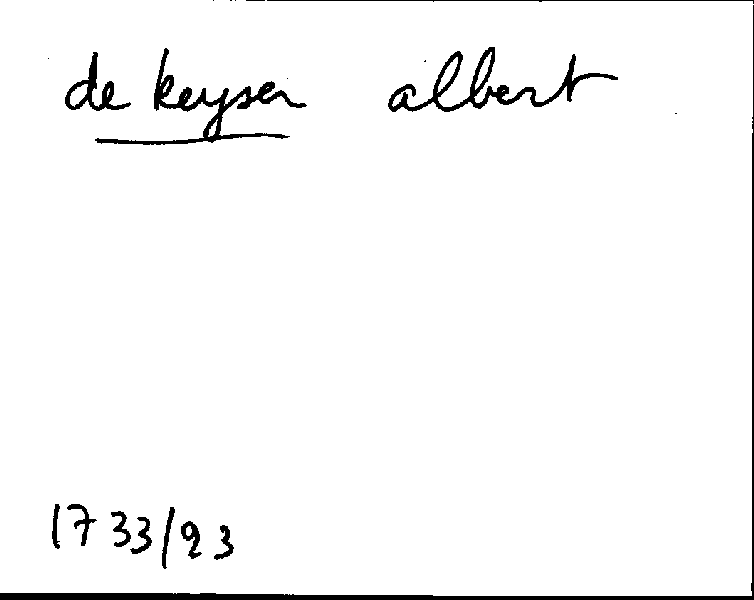 de keyser albert
1733/23